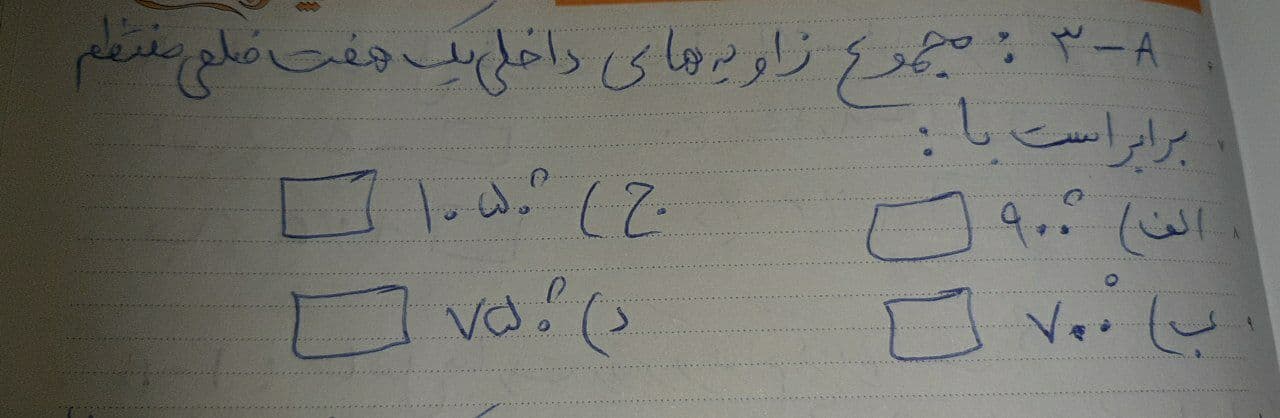 ۳-A : مجموع زاویه های داخلی یک هفت ضلعی منتظم
برابر است با :
الف) ۹۰۰° ج) ۱۰۵۰°
ب) ۷۰۰° د) ۷۵۰°